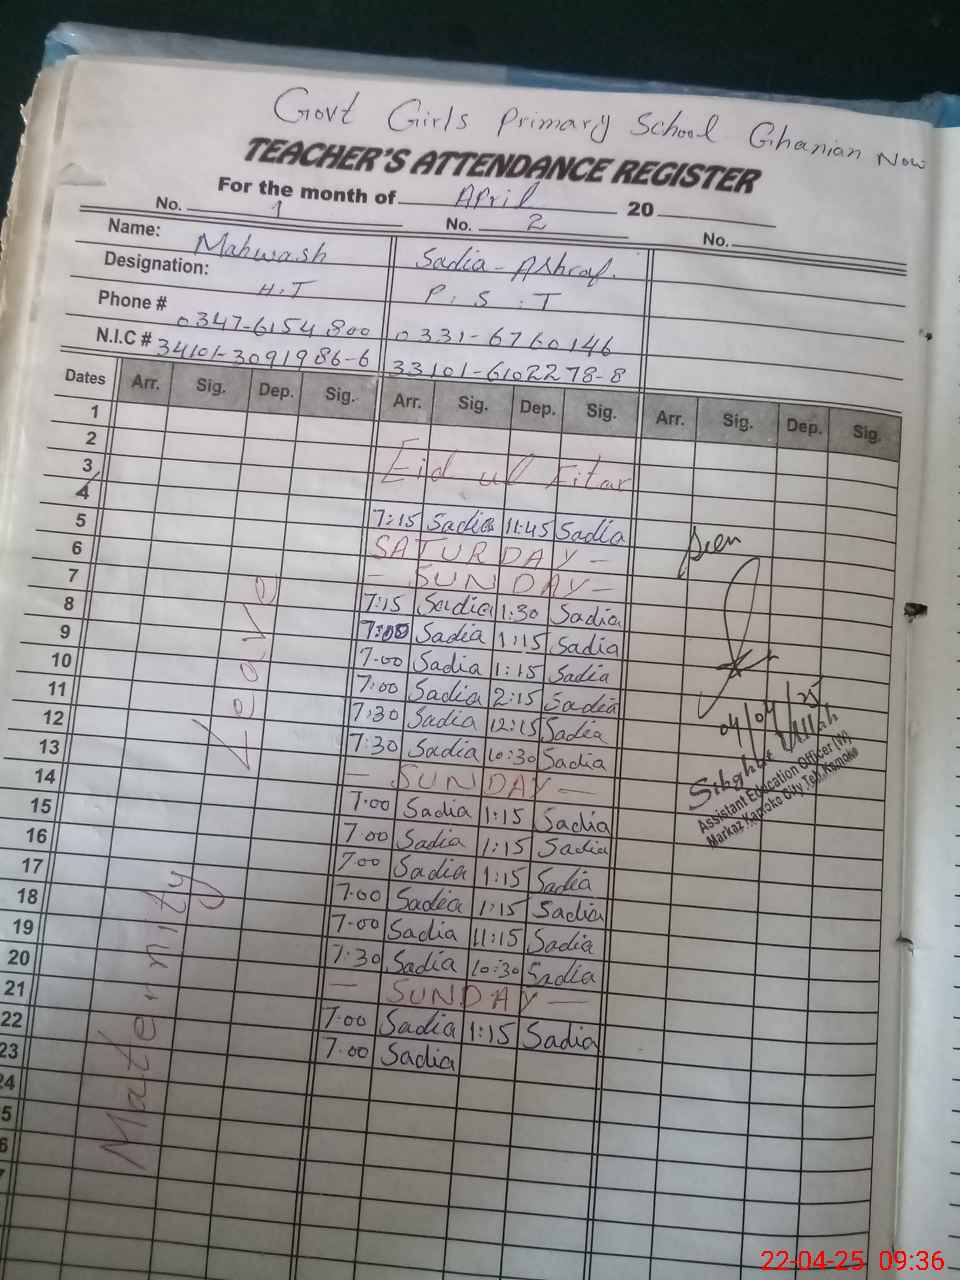 Govt Girls Primary School Ghanian Now
TEACHER'S ATTENDANCE REGISTER
For the month of April 20
No. 1 No. 2 No.
Name: Mahwash Sadia - Ashraf.
Designation: H.T P. S. T
Phone # 0347-6154800 0331-6760146
N.I.C # 34101-3091986-6 33101-6102278-8
Dates Arr. Sig. Dep. Sig. Arr. Sig. Dep. Sig. Arr. Sig. Dep. Sig.
1
2 Eid ul Fitar
3
4 7:15 Sadia 11:45 Sadia
5 SATURDAY -
6 - SUNDAY -
7 7:15 Sadia 1:30 Sadia
8 7:00 Sadia 1:15 Sadia
9 7.00 Sadia 1:15 Sadia
10 7:00 Sadia 2:15 Sadia
11 7:30 Sadia 12:15 Sadia
12 7:30 Sadia 10:30 Sadia
13 - SUNDAY -
14 7.00 Sadia 1:15 Sadia
15 7.00 Sadia 1:15 Sadia
16 7.00 Sadia 1:15 Sadia
17 7.00 Sadia 1:15 Sadia
18 7.00 Sadia 11:15 Sadia
19 7:30 Sadia 10:30 Sadia
20 - SUNDAY -
21 7.00 Sadia 1:15 Sadia
22 7.00 Sadia
23
24
5
6
7
Maternity Leave
Seen
04/04/25
Sibghat Ullah
Assistant Education Officer (W)
Markaz Kamoke City Teh. Kamoke
22-04-25 09:36